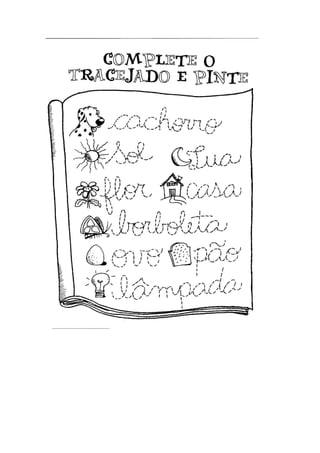 COMPLETE O
TRACEJADO E PINTE
cachorro
sol lua
flor casa
borboleta
ovo pão
lâmpada